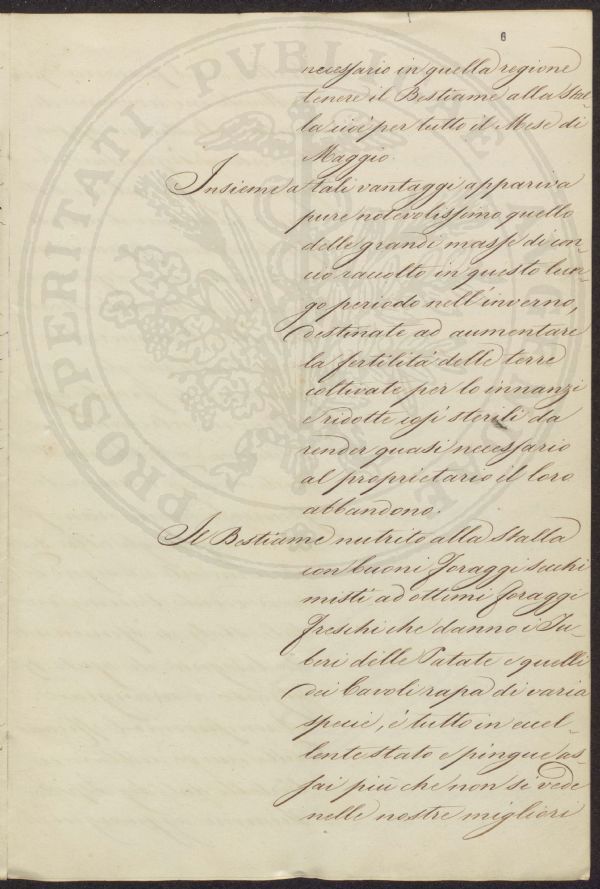 6
necessario in quella regione
tenere il Bestiame alla Stal-
la così per tutto il Mese di
Maggio.
Insieme a tali vantaggi appariva
pure notevolissimo quello
delle grandi masse di con-
cio raccolto in questo lun-
go periodo nell'inverno,
destinate ad aumentare
la fertilità delle terre
coltivate per lo innanzi
e ridotte così sterili da
render quasi necessario
al proprietario il loro
abbandono.
Il Bestiame nutrito alla Stalla
con buoni Foraggi secchi
misti ad ottimi foraggi
freschi che danno i Tu-
beri delle Patate e quelli
dei Cavoli rapa di varia
specie, è tutto in eccel-
lente stato e pingue as-
sai più che non si vede
nelle nostre migliori
PROSPERITATI PVBLICAE AVGENDAE